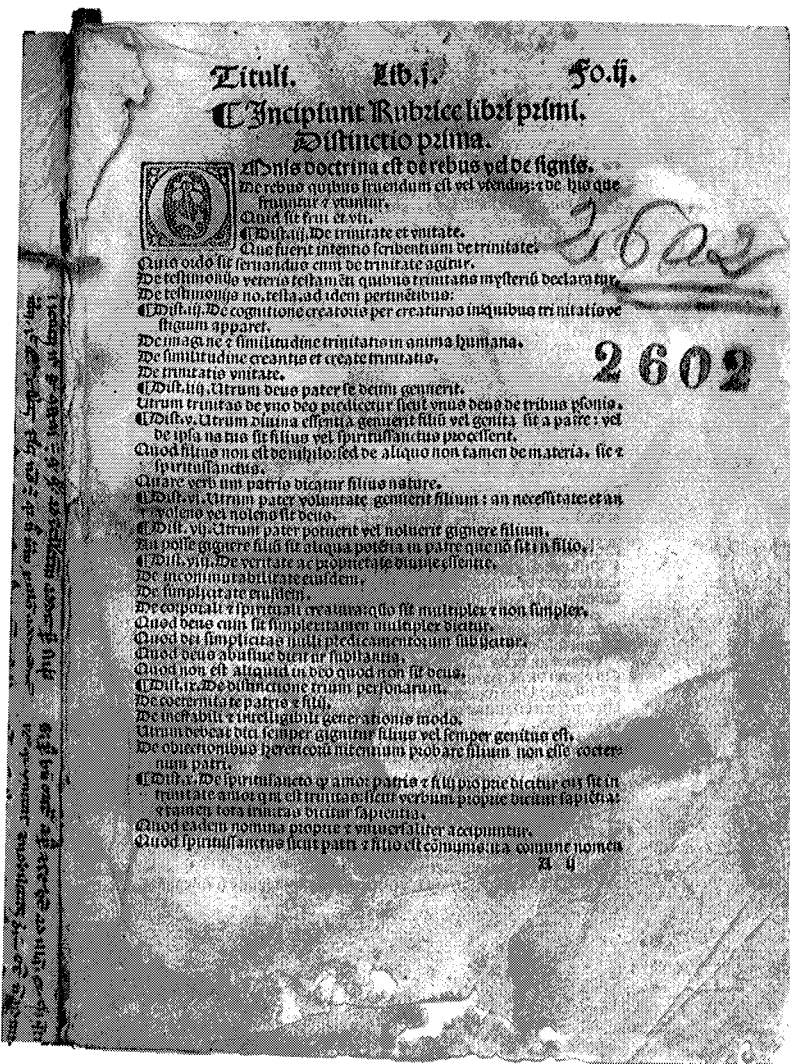 Tituli. Lib.j. Fo.ij.
¶ Incipiunt Rubrice libri primi.
Distinctio prima.
Omnis doctrina est de rebus vel de signis.
De rebus quibus fruendum est vel vtendum: ⁊ de his que
fruuntur ⁊ vtuntur.
Quid sit frui et vti.
¶ Dist.ij. De trinitate et vnitate.
Que fuerit intentio scribentium de trinitate.
2602
Quis ordo sit seruandus cum de trinitate agitur.
De testimonijs veteris testamēti quibus trinitatis mysteriū declaratur.
De testimonijs no.testa.ad idem pertinētibus:
¶ Dist.iij. De cognitione creatoris per creaturas in quibus trinitatis ve
stigium apparet.
De imagine ⁊ similitudine trinitatis in anima humana.
De similitudine creantis et create trinitatis.
De trinitatis vnitate.
2602
¶ Dist.iiij. Utrum deus pater se deum genuerit.
Utrum trinitas de vno deo predicetur sicut vnus deus de tribus psonis.
¶ Dist.v. Utrum diuina essentia genuerit filiū vel genita sit a patre: vel
de ipsa natus sit filius vel spiritussanctus processerit.
Quod filius non est de nihilo: sed de aliquo non tamen de materia. sic ⁊
spiritussanctus.
Quare verbum patris dicatur filius nature.
¶ Dist.vi. Utrum pater voluntate genuerit filium: an necessitate: et an
volens vel nolens sit deus.
¶ Dist.vij. Utrum pater potuerit vel noluerit gignere filium.
An posse gignere filiū sit aliqua potētia in patre que nō sit in filio.
¶ Dist.viij. De veritate ac proprietate diuine essentie.
De incommutabilitate eiusdem.
De simplicitate eiusdem.
De corporali ⁊ spirituali creatura: quō sit multiplex ⁊ non simplex.
Quod deus cum sit simplex tamen multiplex dicitur.
Quod dei simplicitas nulli predicamentorum subijcitur.
Quod deus abusiue dicitur substantia.
Quod non est aliquid in deo quod non sit deus.
¶ Dist.ix. De distinctione trium personarum.
De coeternitate patris ⁊ filij.
De ineffabili ⁊ intelligibili generationis modo.
Utrum debeat dici semper gignitur filius vel semper genitus est.
De obiectionibus hereticorū nitentium probare filium non esse coeter-
num patri.
¶ Dist.x. De spiritusancto ꝙ amor patris ⁊ filij proprie dicitur cū sit in
trinitate amor qui est trinitas: sicut verbum proprie dicitur sapiētia:
⁊ tamen tota trinitas dicitur sapientia.
Quod eadem nomina proprie ⁊ vniuersaliter accipiuntur.
Quod spiritussanctus sicut patri ⁊ filio est cōmunis: ita comune nomen
A ij